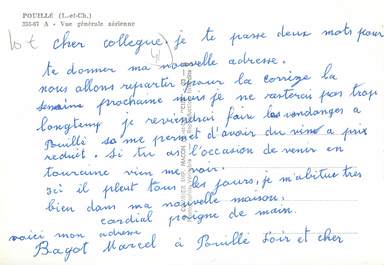 POUILLÉ (L.-et-Ch.)
335-67 A - Vue générale aérienne
lot
cher collegue. je te passe deux mots pour
te donner ma nouvelle adresse.
nous allons repartir pour la corrèze la
semaine prochaine mais je ne resterai pas trop
longtemp je reviendrai faire les vendanges a
Pouillé sa me permet d'avoir du vin a prix
reduit. Si tu as l'occasion de venir en
touraine vien me voir.
ici il pleut tous les jours, je m'abitue très
bien dans ma nouvelle maison,
cordial poigne de main.
voici mon adresse
Bagot Marcel à Pouillé Loir et cher